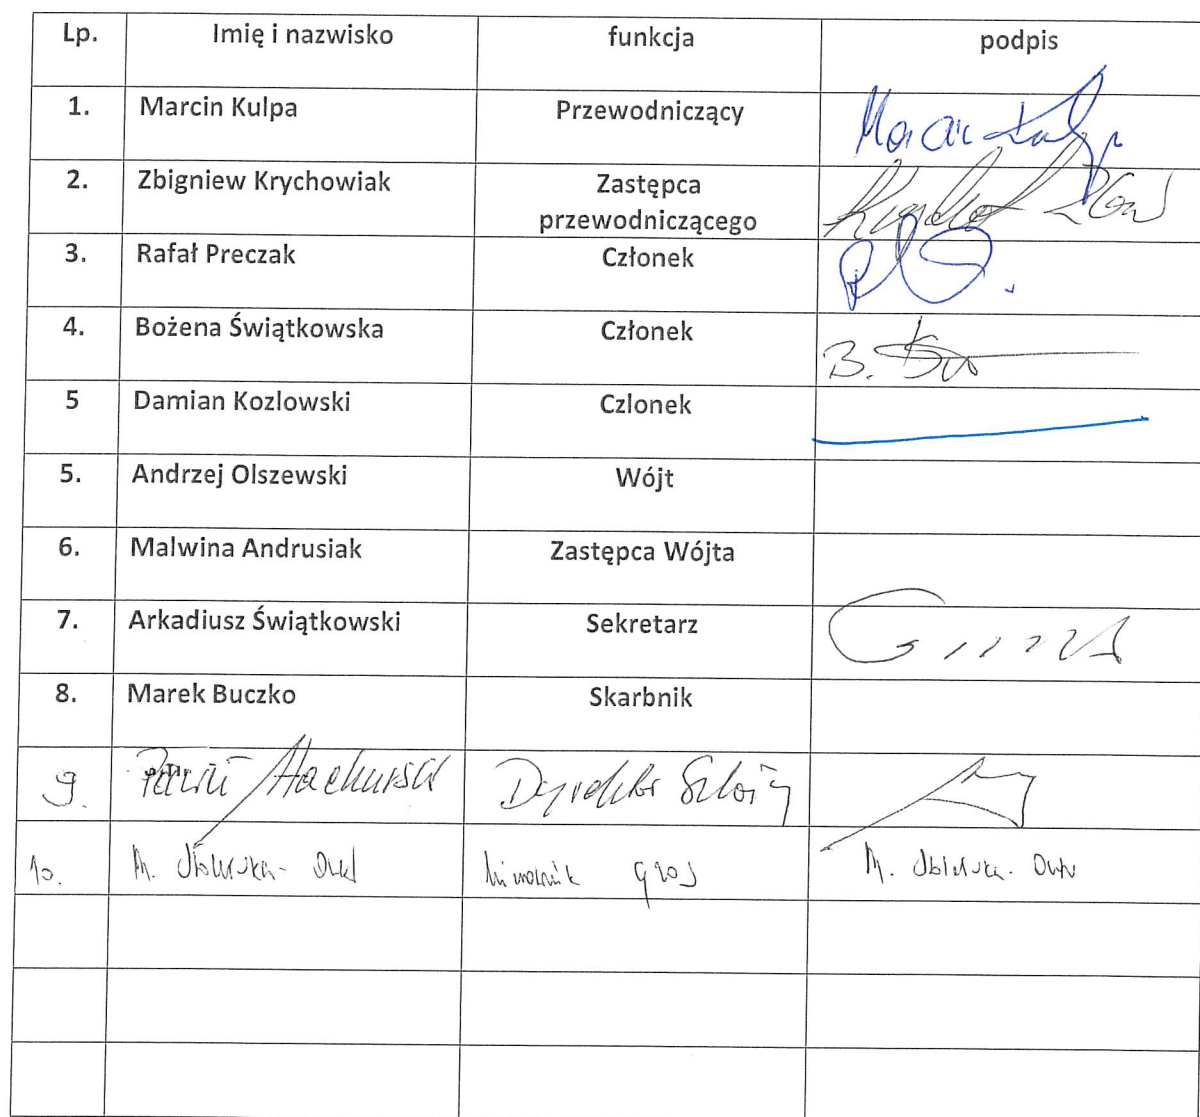 Lp. Imię i nazwisko funkcja podpis
1. Marcin Kulpa Przewodniczący Marcin Kulpa
2. Zbigniew Krychowiak Zastępca
przewodniczącego
3. Rafał Preczak Członek
4. Bożena Świątkowska Członek B.
5 Damian Kozlowski Czlonek
5. Andrzej Olszewski Wójt
6. Malwina Andrusiak Zastępca Wójta
7. Arkadiusz Świątkowski Sekretarz
8. Marek Buczko Skarbnik
9. Dyrektor Szkoły
10. M. M.